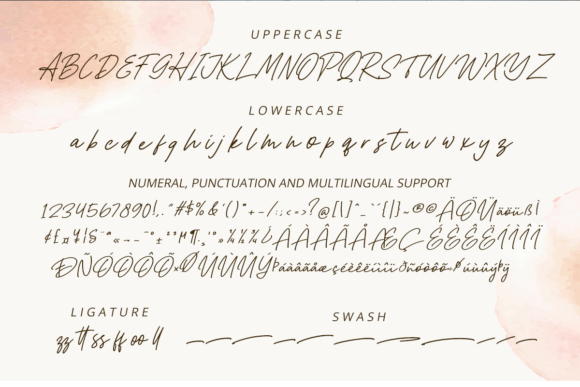 UPPERCASE
ABCDEFGHIJKLMNOPQRSTUVWXYZ
LOWERCASE
abcdefghijklmnopqrstuvwxyz
NUMERAL, PUNCTUATION AND MULTILINGUAL SUPPORT
1234567890!,."#$%&'()*+-/:;<=>?@[\]^_`{|}~©®ÄÖÜäöüßÌ
ÀÁÂÃÅÆÇÈÉÊËÍÎÏ
ÐÑÒÓÔÕ×ØÙÚÛÝÞáàâãåæçéèêëíìîïðñóòôõ÷øúùûýþÿ
LIGATURE
SWASH
zz tt ss ff oo ll